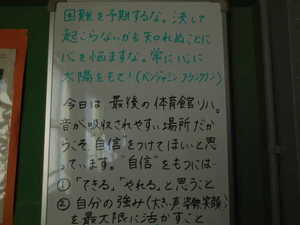 困難を予期するな。決して
起こらないかも知れぬことに
心を悩ますな。常に心に
太陽をもて！(ベンジャミン・フランクリン)
今日は、最後の体育館リハ。
音が吸収されやすい場所だか
らこそ"自信"をつけてほしいと思
っています。"自信"をもつには…
①「できる」「やれる」と思うこと
②自分の強み(大きい声、姿勢、笑顔)
を最大限に活かすこと